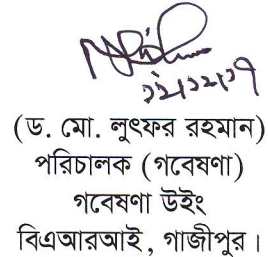 ১২/১২/১৭
(ড. মো. লুৎফর রহমান)
পরিচালক (গবেষণা)
গবেষণা উইং
বিএআরআই, গাজীপুর।